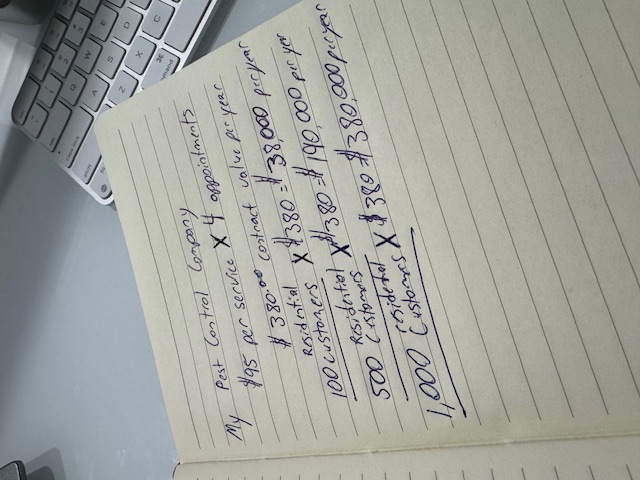 My Pest Control Company
$95 per service X 4 appointments
$380.00 contract value per year
Residential
100 customers X $380 = $38,000 per year
Residential
500 Customers X $380 = $190,000 per year
residential
1,000 Customers X $380 $380,000 per year
Q W E
A S D
Z X C
command